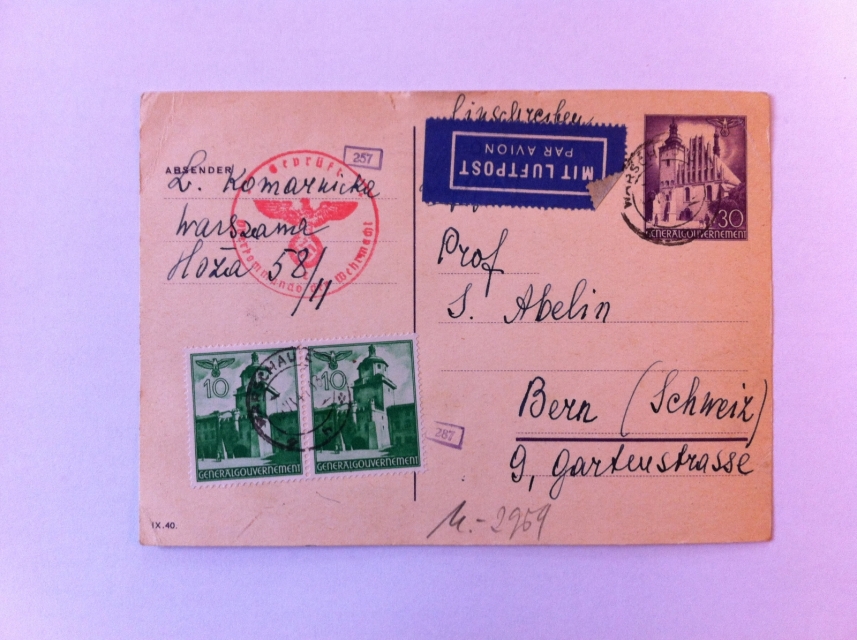 Einschreiben
MIT LUFTPOST
PAR AVION
30
GENERALGOUVERNEMENT
WARSCHAU
257
Geprüft
Oberkommando der Wehrmacht
ABSENDER
L. Komarnicka
Warszawa
Hoża 58/11
Prof
S. Abelin
Bern (Schweiz)
9, Gartenstrasse
10
10
GENERALGOUVERNEMENT
GENERALGOUVERNEMENT
WARSCHAU
287
IX.40.
2959